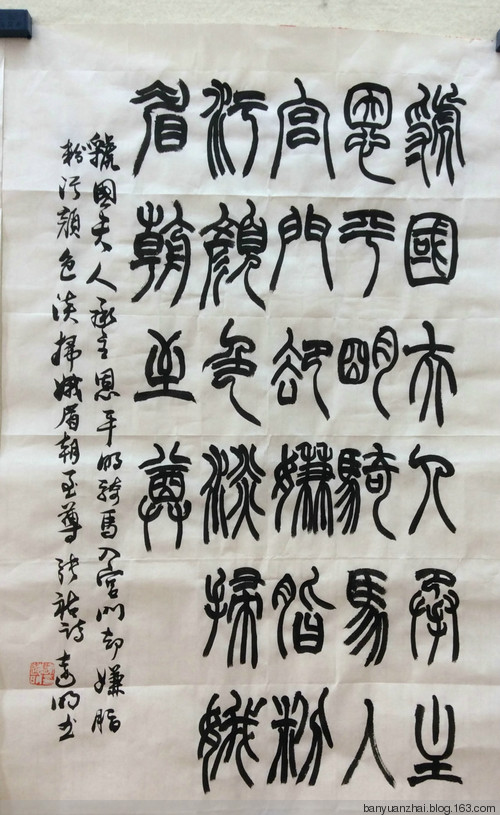 虢國夫人承主
恩平明騎馬入
宮門却嫌脂粉
污顏色淡掃娥
眉朝至尊
虢國夫人承主恩平明騎馬入宮門却嫌脂
粉污顏色淡掃娥眉朝至尊 張祜詩 明书
banyuanzhai.blog.163.com